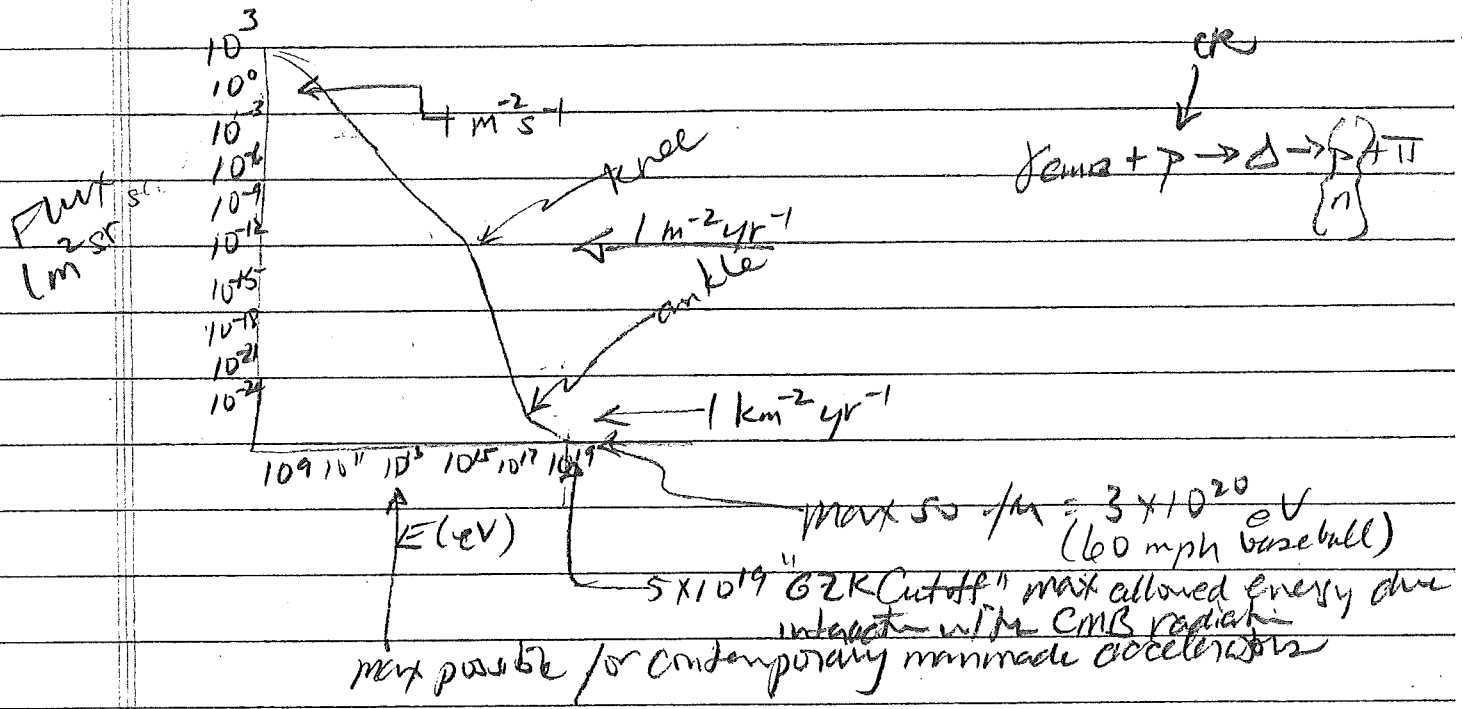 10³
10⁰
10⁻³
10⁻⁶
10⁻⁹
10⁻¹²
10⁻¹⁵
10⁻¹⁸
10⁻²¹
10⁻²⁴
Flux
(m² sr
1 m⁻² s⁻¹
knee
1 m⁻² yr⁻¹
ankle
1 km⁻² yr⁻¹
CR
γ_CMB + p → Δ → {p} + π
{n}
10⁹ 10¹¹ 10¹³ 10¹⁵ 10¹⁷ 10¹⁹
E (eV)
max so far = 3 × 10²⁰ eV
(60 mph baseball)
5 × 10¹⁹ "GZK Cutoff" max allowed energy due
interaction with CMB radiation
max possible for contemporary manmade accelerators